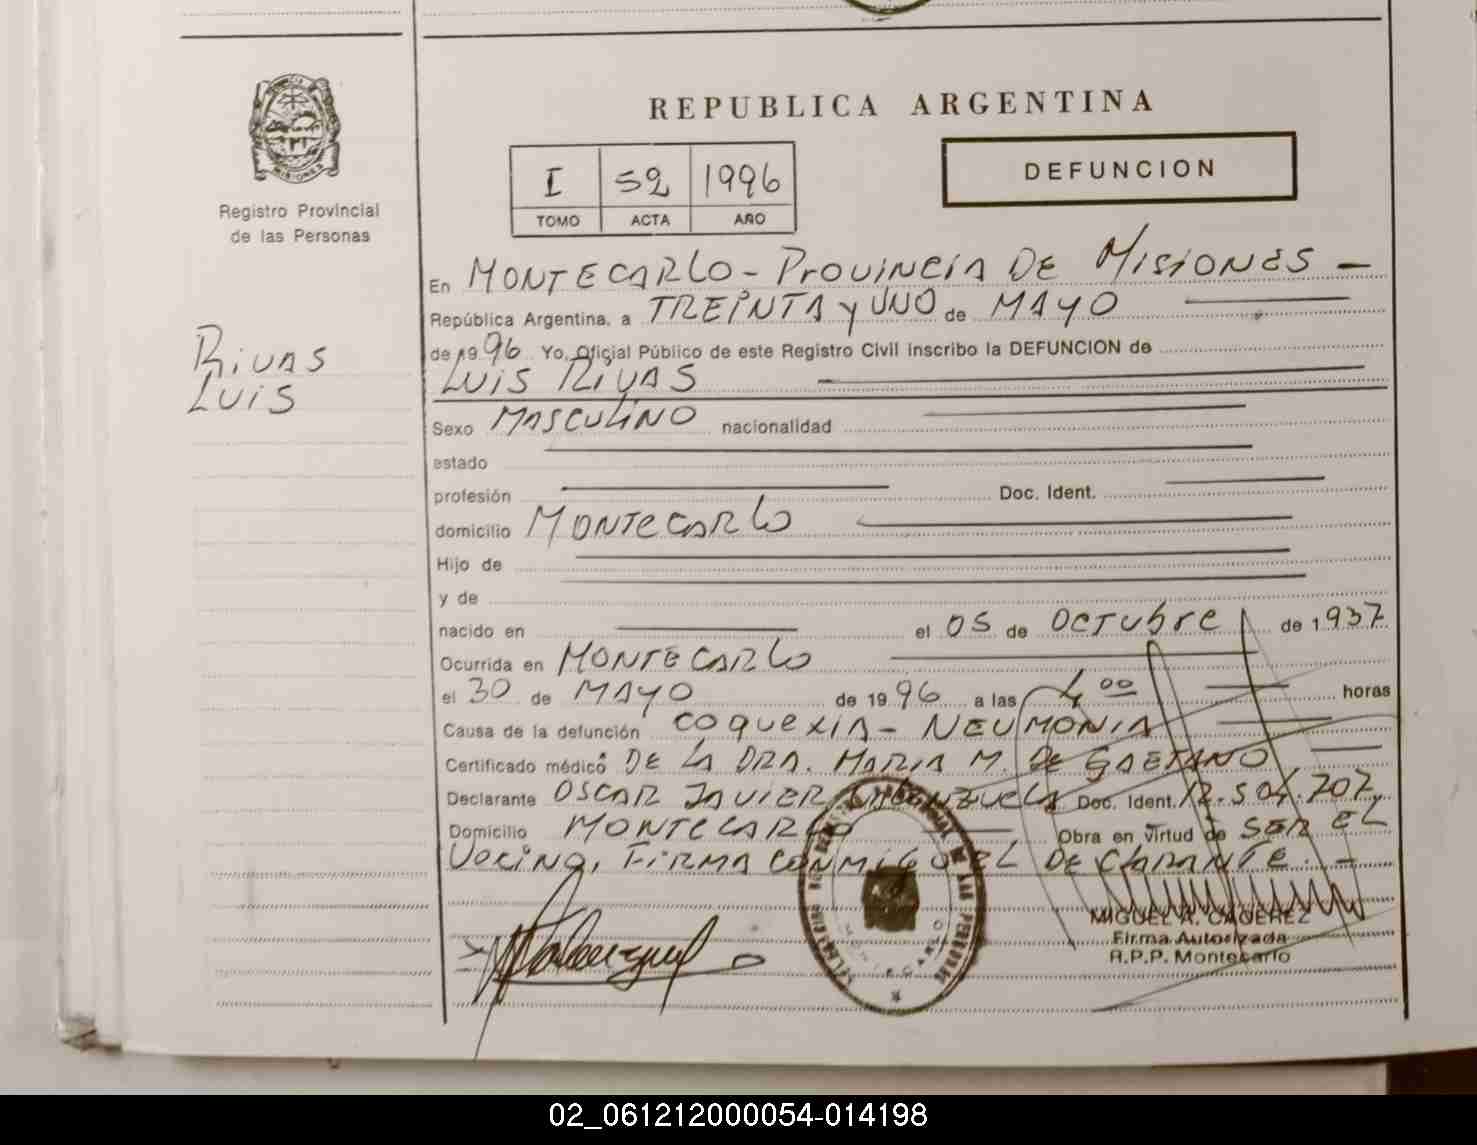 REPUBLICA ARGENTINA
I 52 1996
TOMO ACTA AÑO
DEFUNCION
MISIONES
Registro Provincial
de las Personas
Rivas
Luis
En MONTECARLO - Provincia DE Misiones -
República Argentina, a TREINTA y UNO de MAYO
de 1996 Yo, Oficial Público de este Registro Civil inscribo la DEFUNCION de
Luis Rivas
Sexo MASCULINO nacionalidad
estado
profesión Doc. Ident.
domicilio MONTECARLO
Hijo de
y de
nacido en el 05 de Octubre de 1937
Ocurrida en MONTECARLO
el 30 de MAYO de 1996 a las 4,00 horas
Causa de la defunción COQUEXIA - NEUMONIA
Certificado médico DE LA DRA. MARIA M. DE GAETANO
Declarante OSCAR JAVIER Doc. Ident. 12.504.707
Domicilio MONTECARLO Obra en virtud de SER EL
Vecino, FIRMA CONMIGO EL DECLARANTE. -
MIGUEL A.
Firma Autorizada
R.P.P. Montecarlo
02_061212000054-014198